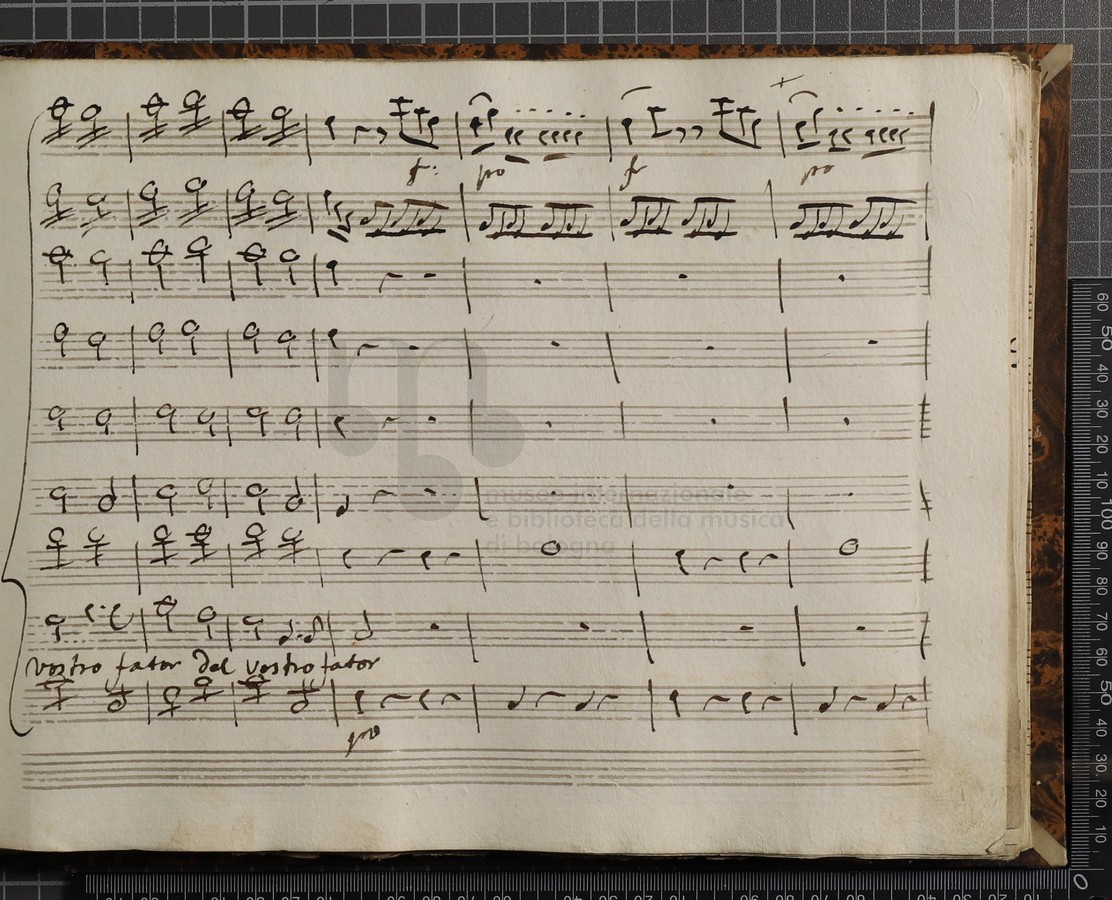 f: po f po
museo internazionale
e biblioteca della musica
di bologna
vostro favor del vostro favor
po
60 50 40 30 20 10 100 90 80 70 60 50 40 30 20 10
0